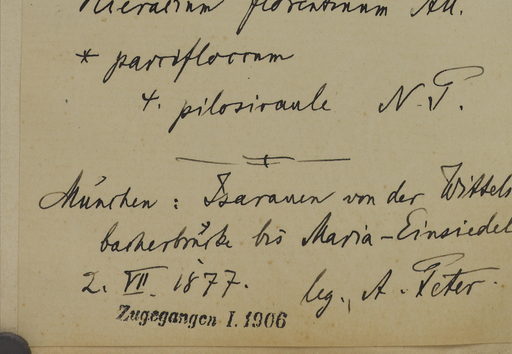 Hieracium florentinum All.
* parviflorum
4. pilosicaule N. P.
München : Isarauen von der Wittels
bacherbrücke bis Maria-Einsiedel
2. VII. 1877. leg. A. Peter.
Zugegangen I. 1906